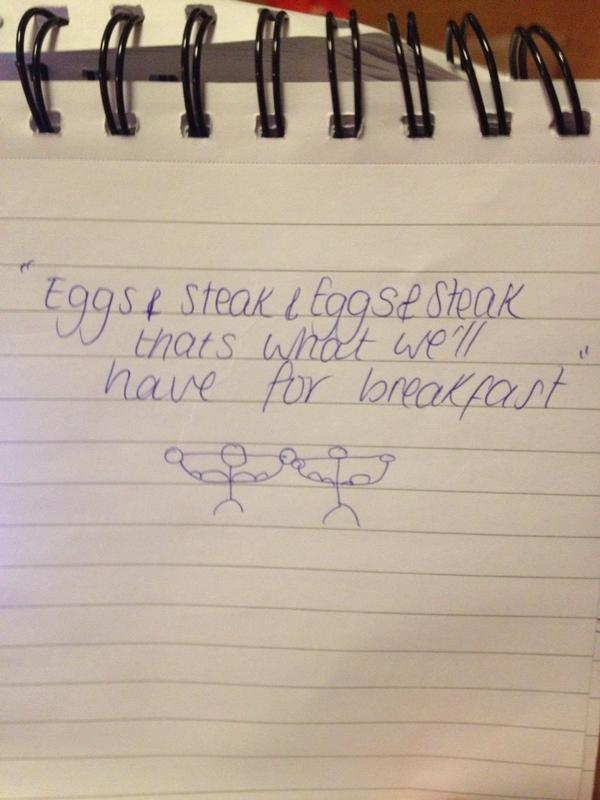 "Eggs & Steak & Eggs & Steak
thats what we'll
have for breakfast"